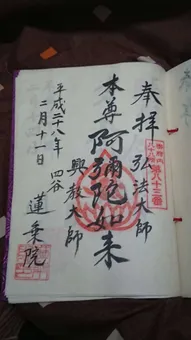 奉拝
弘法大師
第八十三番
本尊阿彌陀如来
興教大師
平成二八年
四谷
二月十一日
蓮乗院